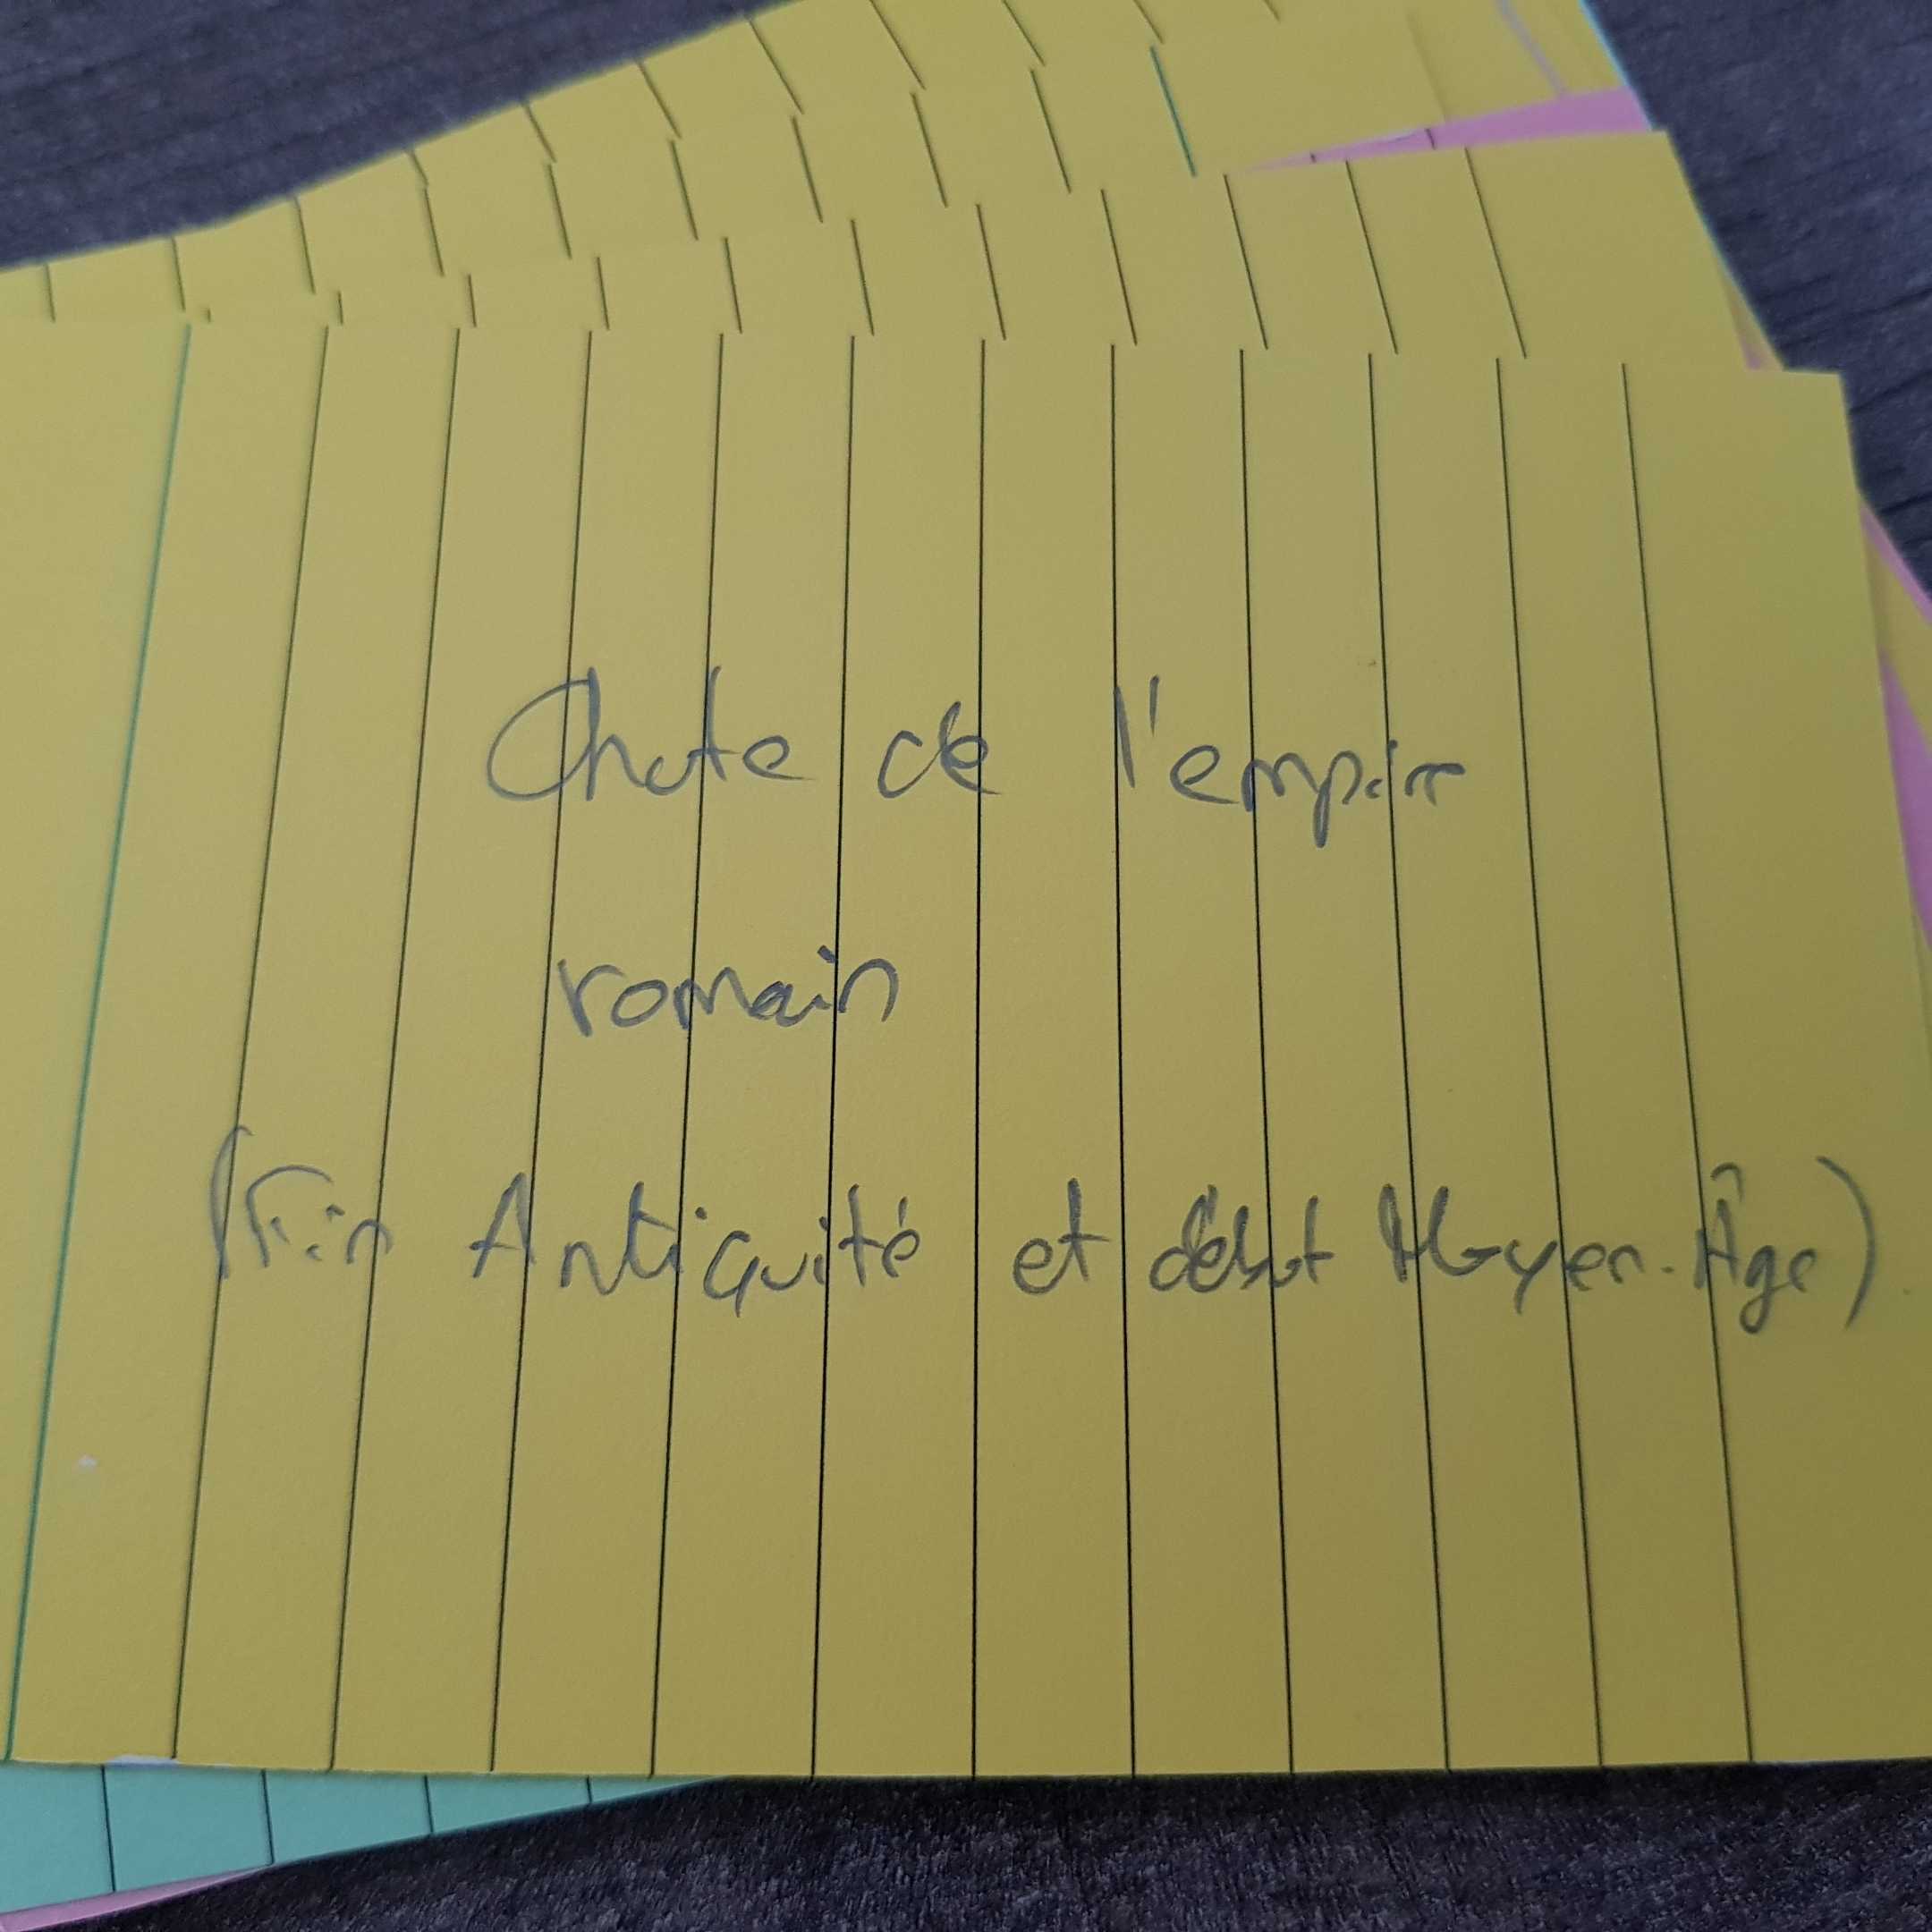 Chute de l'empire
romain
(Fin Antiquité et début Moyen-Âge)